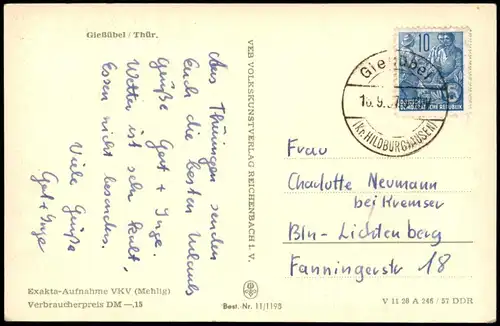 Gießübel / Thür.
Aus Thüringen senden
Euch die besten Urlaubs
Grüße Gert + Inge.
Wetter ist sehr kalt,
Essen nicht besonders.
Viele Grüße
Gert + Inge
Exakta-Aufnahme VKV (Mehlig)
Verbraucherpreis DM —,15
VEB VOLKSKUNSTVERLAG REICHENBACH I. V.
Best. Nr. 11/1195
10
DEUTSCHE DEMOKRATISCHE REPUBLIK
Gießübel
(Kr. HILDBURGHAUSEN)
Frau
Charlotte Neumann
bei Kremser
Bln-Lichtenberg
Fanningerstr 18
V 11 28 A 246 / 57 DDR